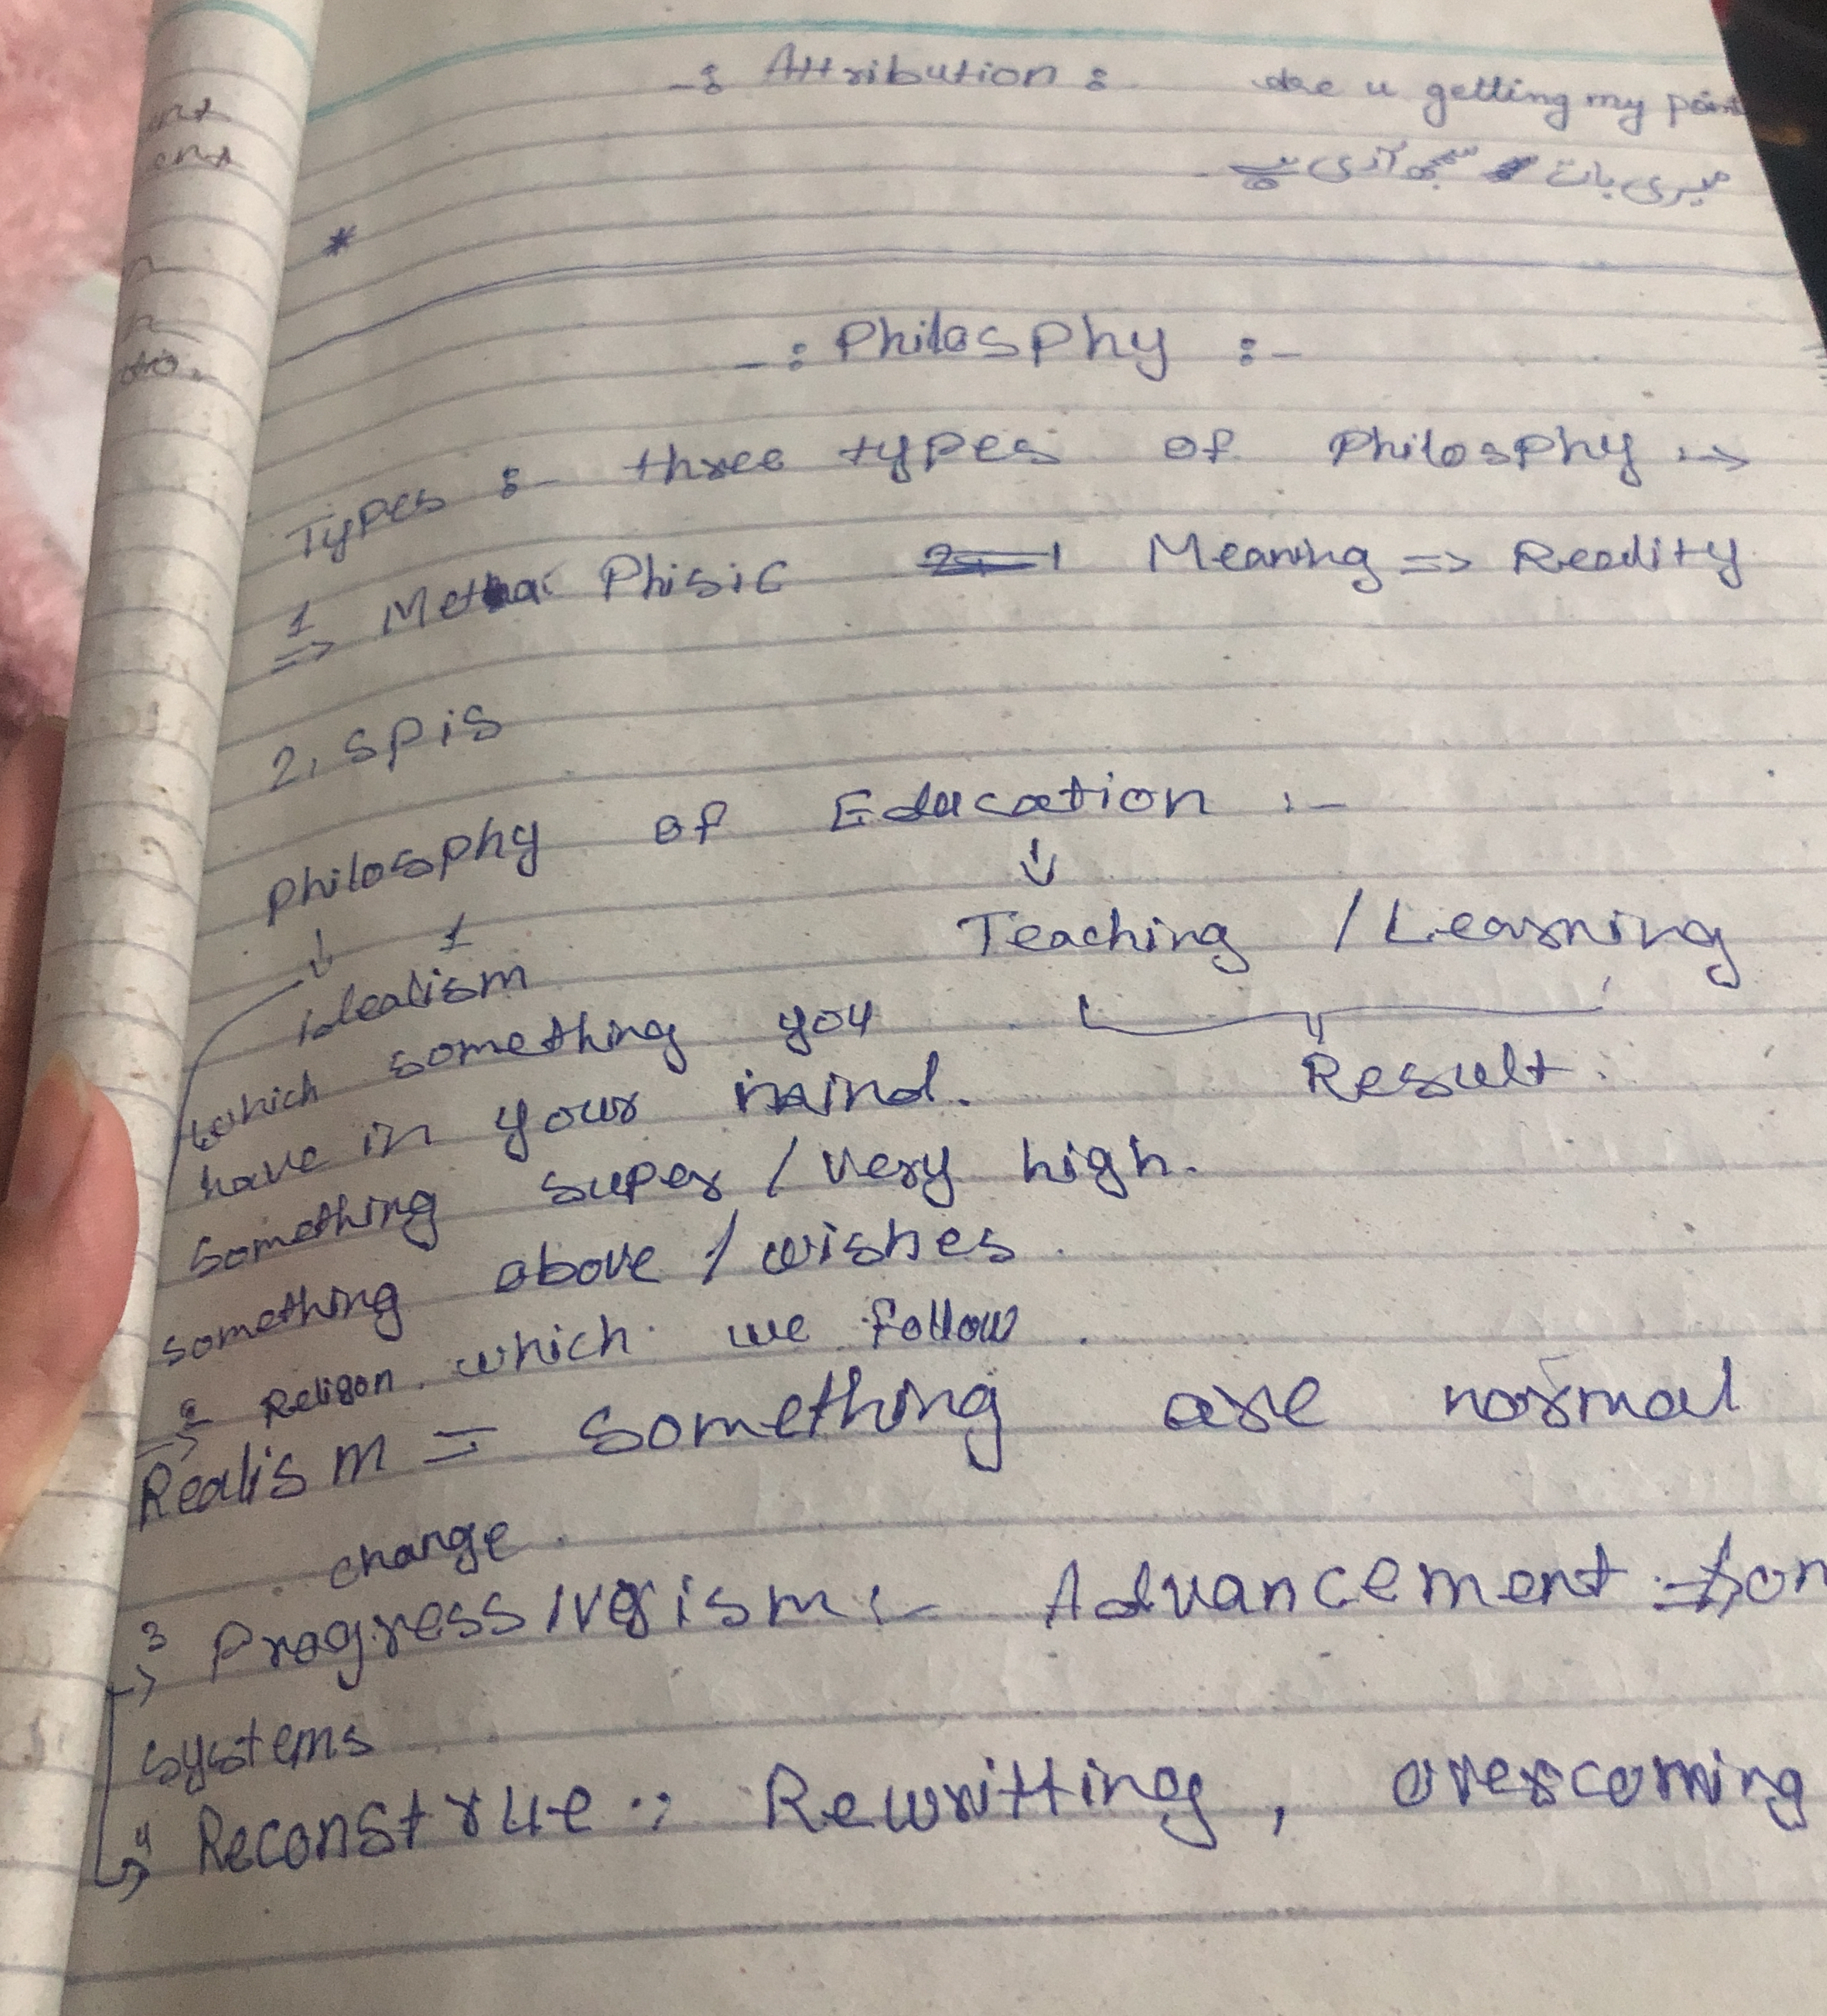 -: Attribution : are u getting my point
میری بات سمجھ آرہی ہے
*
-: Philosphy :-
Types :- three types of Philosphy :->
1 => Meta Phisic Meaning => Reality
2. Spis
Philosphy of Education :-
↓ ↓
1 idealism Teaching / Learning
which something you
have in your mind. Result.
Something super / very high.
Something above / wishes.
Religon. which we follow.
2 -> Realism = Something are normal
change.
3 -> Progressivism :- Advancement
systems
4 -> Reconstrue : Rewritting, overscoming